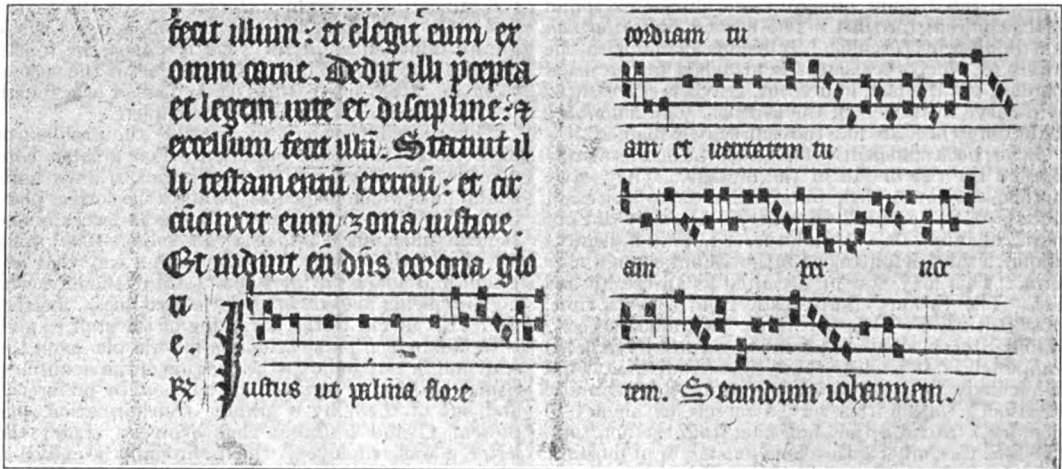 fecit illum: et elegit eum ex
omni carne. Dedit illi p̄cepta
et legem uite et discipline: ⁊
excelsum fecit illū. Statuit il
li testamentū eternū: et cir
cūcinxit eum zona iusticie.
Et induit eū dn̄s corona glo
ri
e.
℟ Iustus ut palma flore
cordiam tu
am et ueritatem tu
am per noc
tem. Secundum iohannem.